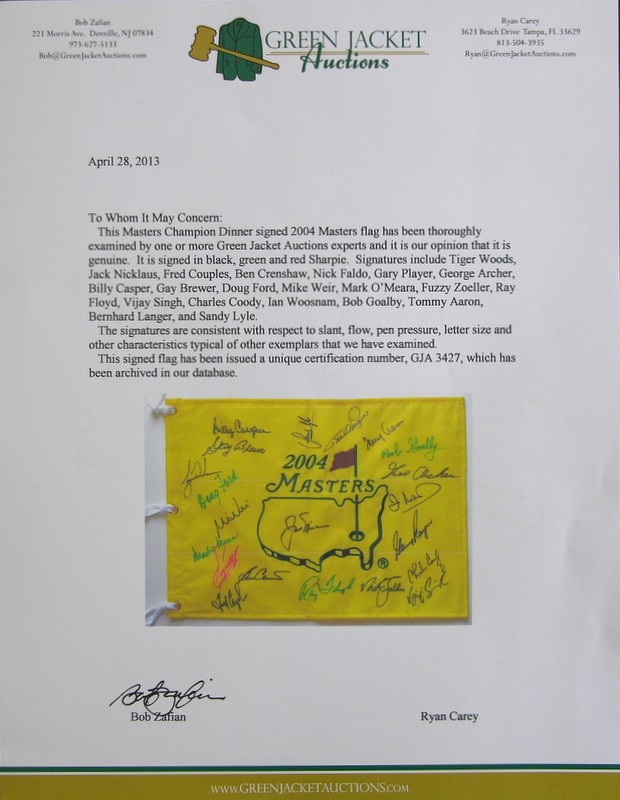 Bob Zafian
221 Morris Ave. Denville, NJ 07834
973-627-5133
Bob@GreenJacketAuctions.com
GREEN JACKET
Auctions
Ryan Carey
3623 Beach Drive Tampa, FL 33629
813-504-3935
Ryan@GreenJacketAuctions.com
April 28, 2013
To Whom It May Concern:
This Masters Champion Dinner signed 2004 Masters flag has been thoroughly
examined by one or more Green Jacket Auctions experts and it is our opinion that it is
genuine. It is signed in black, green and red Sharpie. Signatures include Tiger Woods,
Jack Nicklaus, Fred Couples, Ben Crenshaw, Nick Faldo, Gary Player, George Archer,
Billy Casper, Gay Brewer, Doug Ford, Mike Weir, Mark O'Meara, Fuzzy Zoeller, Ray
Floyd, Vijay Singh, Charles Coody, Ian Woosnam, Bob Goalby, Tommy Aaron,
Bernhard Langer, and Sandy Lyle.
The signatures are consistent with respect to slant, flow, pen pressure, letter size and
other characteristics typical of other exemplars that we have examined.
This signed flag has been issued a unique certification number, GJA 3427, which has
been archived in our database.
Billy Casper
Gay Brewer
Tommy Aaron
Bob Goalby
2004
MASTERS
Doug Ford
Ray Floyd
®
Bob Zafian
Ryan Carey
WWW.GREENJACKETAUCTIONS.COM